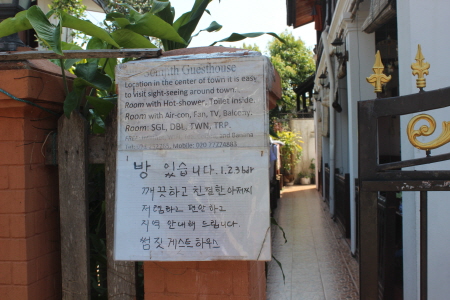 Guesthouse
Location in the center of town it is easy
to visit sight-seeing around town.
Room with Hot-shower, Toilet inside.
Room with Air-con, Fan, TV, Balcony.
Room: SGL, DBL, TWN, TRP.
Mobile: 020
방 있습니다. 1.2.3 bai
깨끗하고 친절한 아저씨
저렴하고 편안하고
지역 안내해 드립니다.
썸짓 게스트하우스